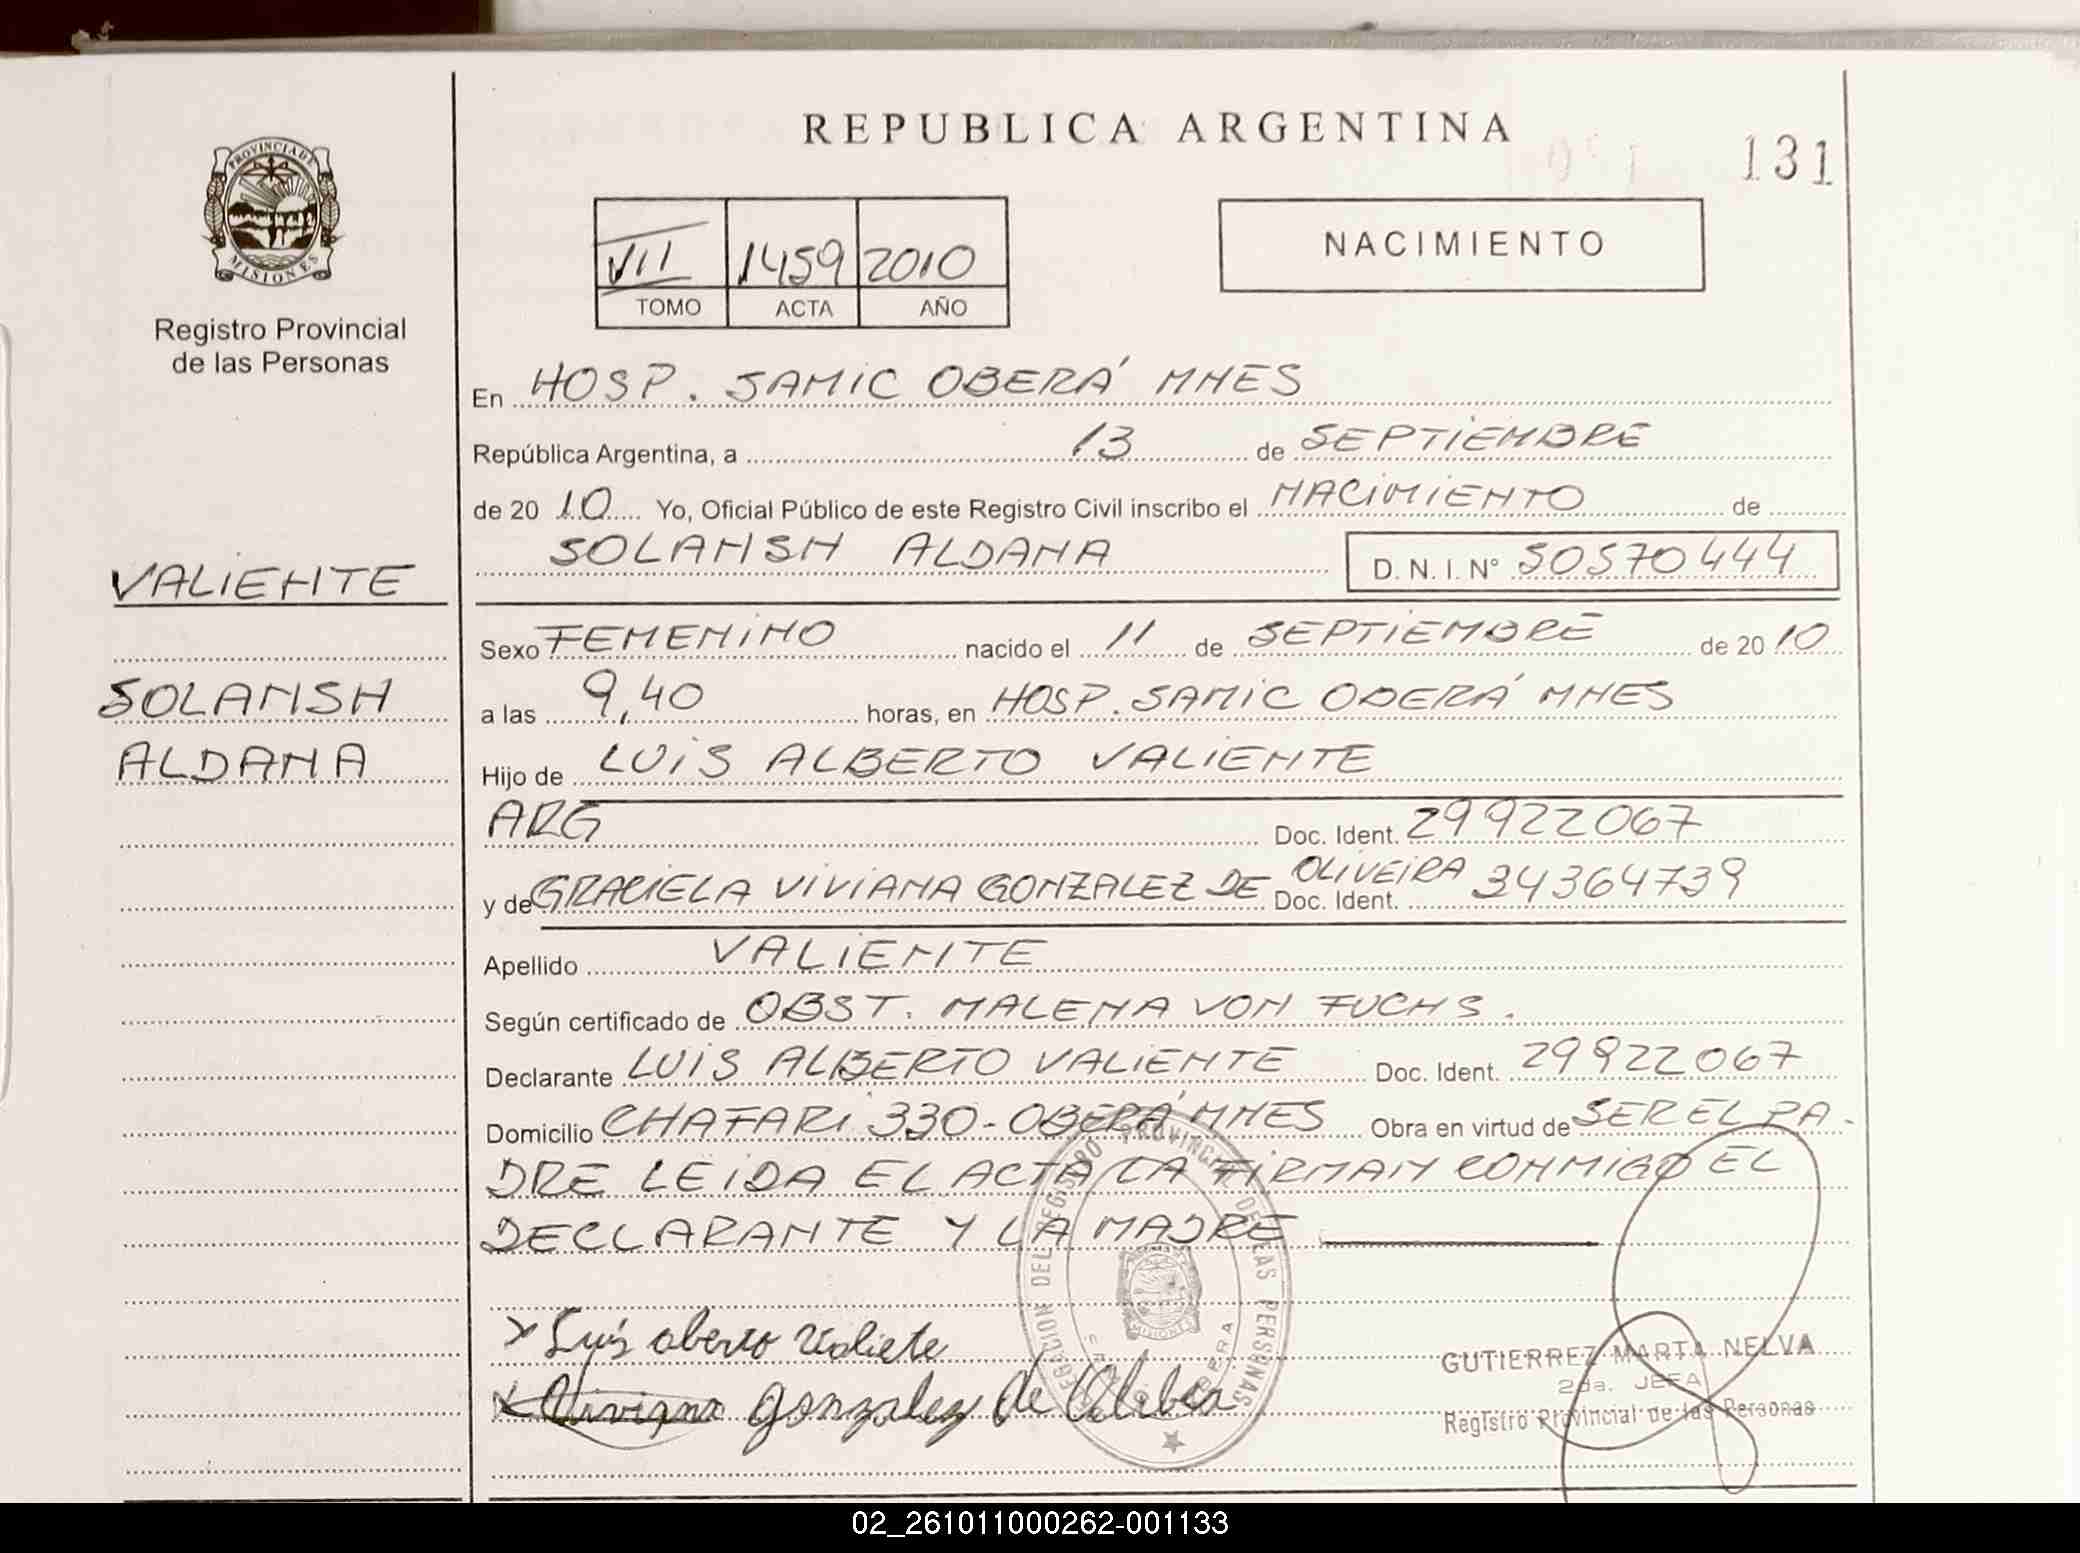 REPUBLICA ARGENTINA
131
PROVINCIA DE
MISIONES
Registro Provincial
de las Personas
VII 1459 2010
TOMO ACTA AÑO
NACIMIENTO
En HOSP. SAMIC OBERÁ MNES
República Argentina, a 13 de SEPTIEMBRE
de 20 10 Yo, Oficial Público de este Registro Civil inscribo el NACIMIENTO de
SOLANSH ALDANA D. N. I. N° 50570444
VALIENTE
SOLANSH
ALDANA
Sexo FEMENINO nacido el 11 de SEPTIEMBRE de 20 10
a las 9,40 horas, en HOSP. SAMIC OBERÁ MNES
Hijo de LUIS ALBERTO VALIENTE
ARG Doc. Ident. 29922067
y de GRACIELA VIVIANA GONZALEZ DE OLIVEIRA Doc. Ident. 34364739
Apellido VALIENTE
Según certificado de OBST. MALENA VON FUCHS.
Declarante LUIS ALBERTO VALIENTE Doc. Ident. 29922067
Domicilio CHAFARI 330-OBERÁ MNES Obra en virtud de SER EL PA-
DRE LEIDA EL ACTA LA FIRMAN CONMIGO EL
DECLARANTE Y LA MADRE
DEL REGISTRO PROVINCIAL DE LAS PERSONAS
MISIONES
x Luis alberto Valiete
x Viviana gonzalez de Olibera
GUTIERREZ MARTA NELVA
2da. JEFA
Registro Provincial de las Personas
02_261011000262-001133